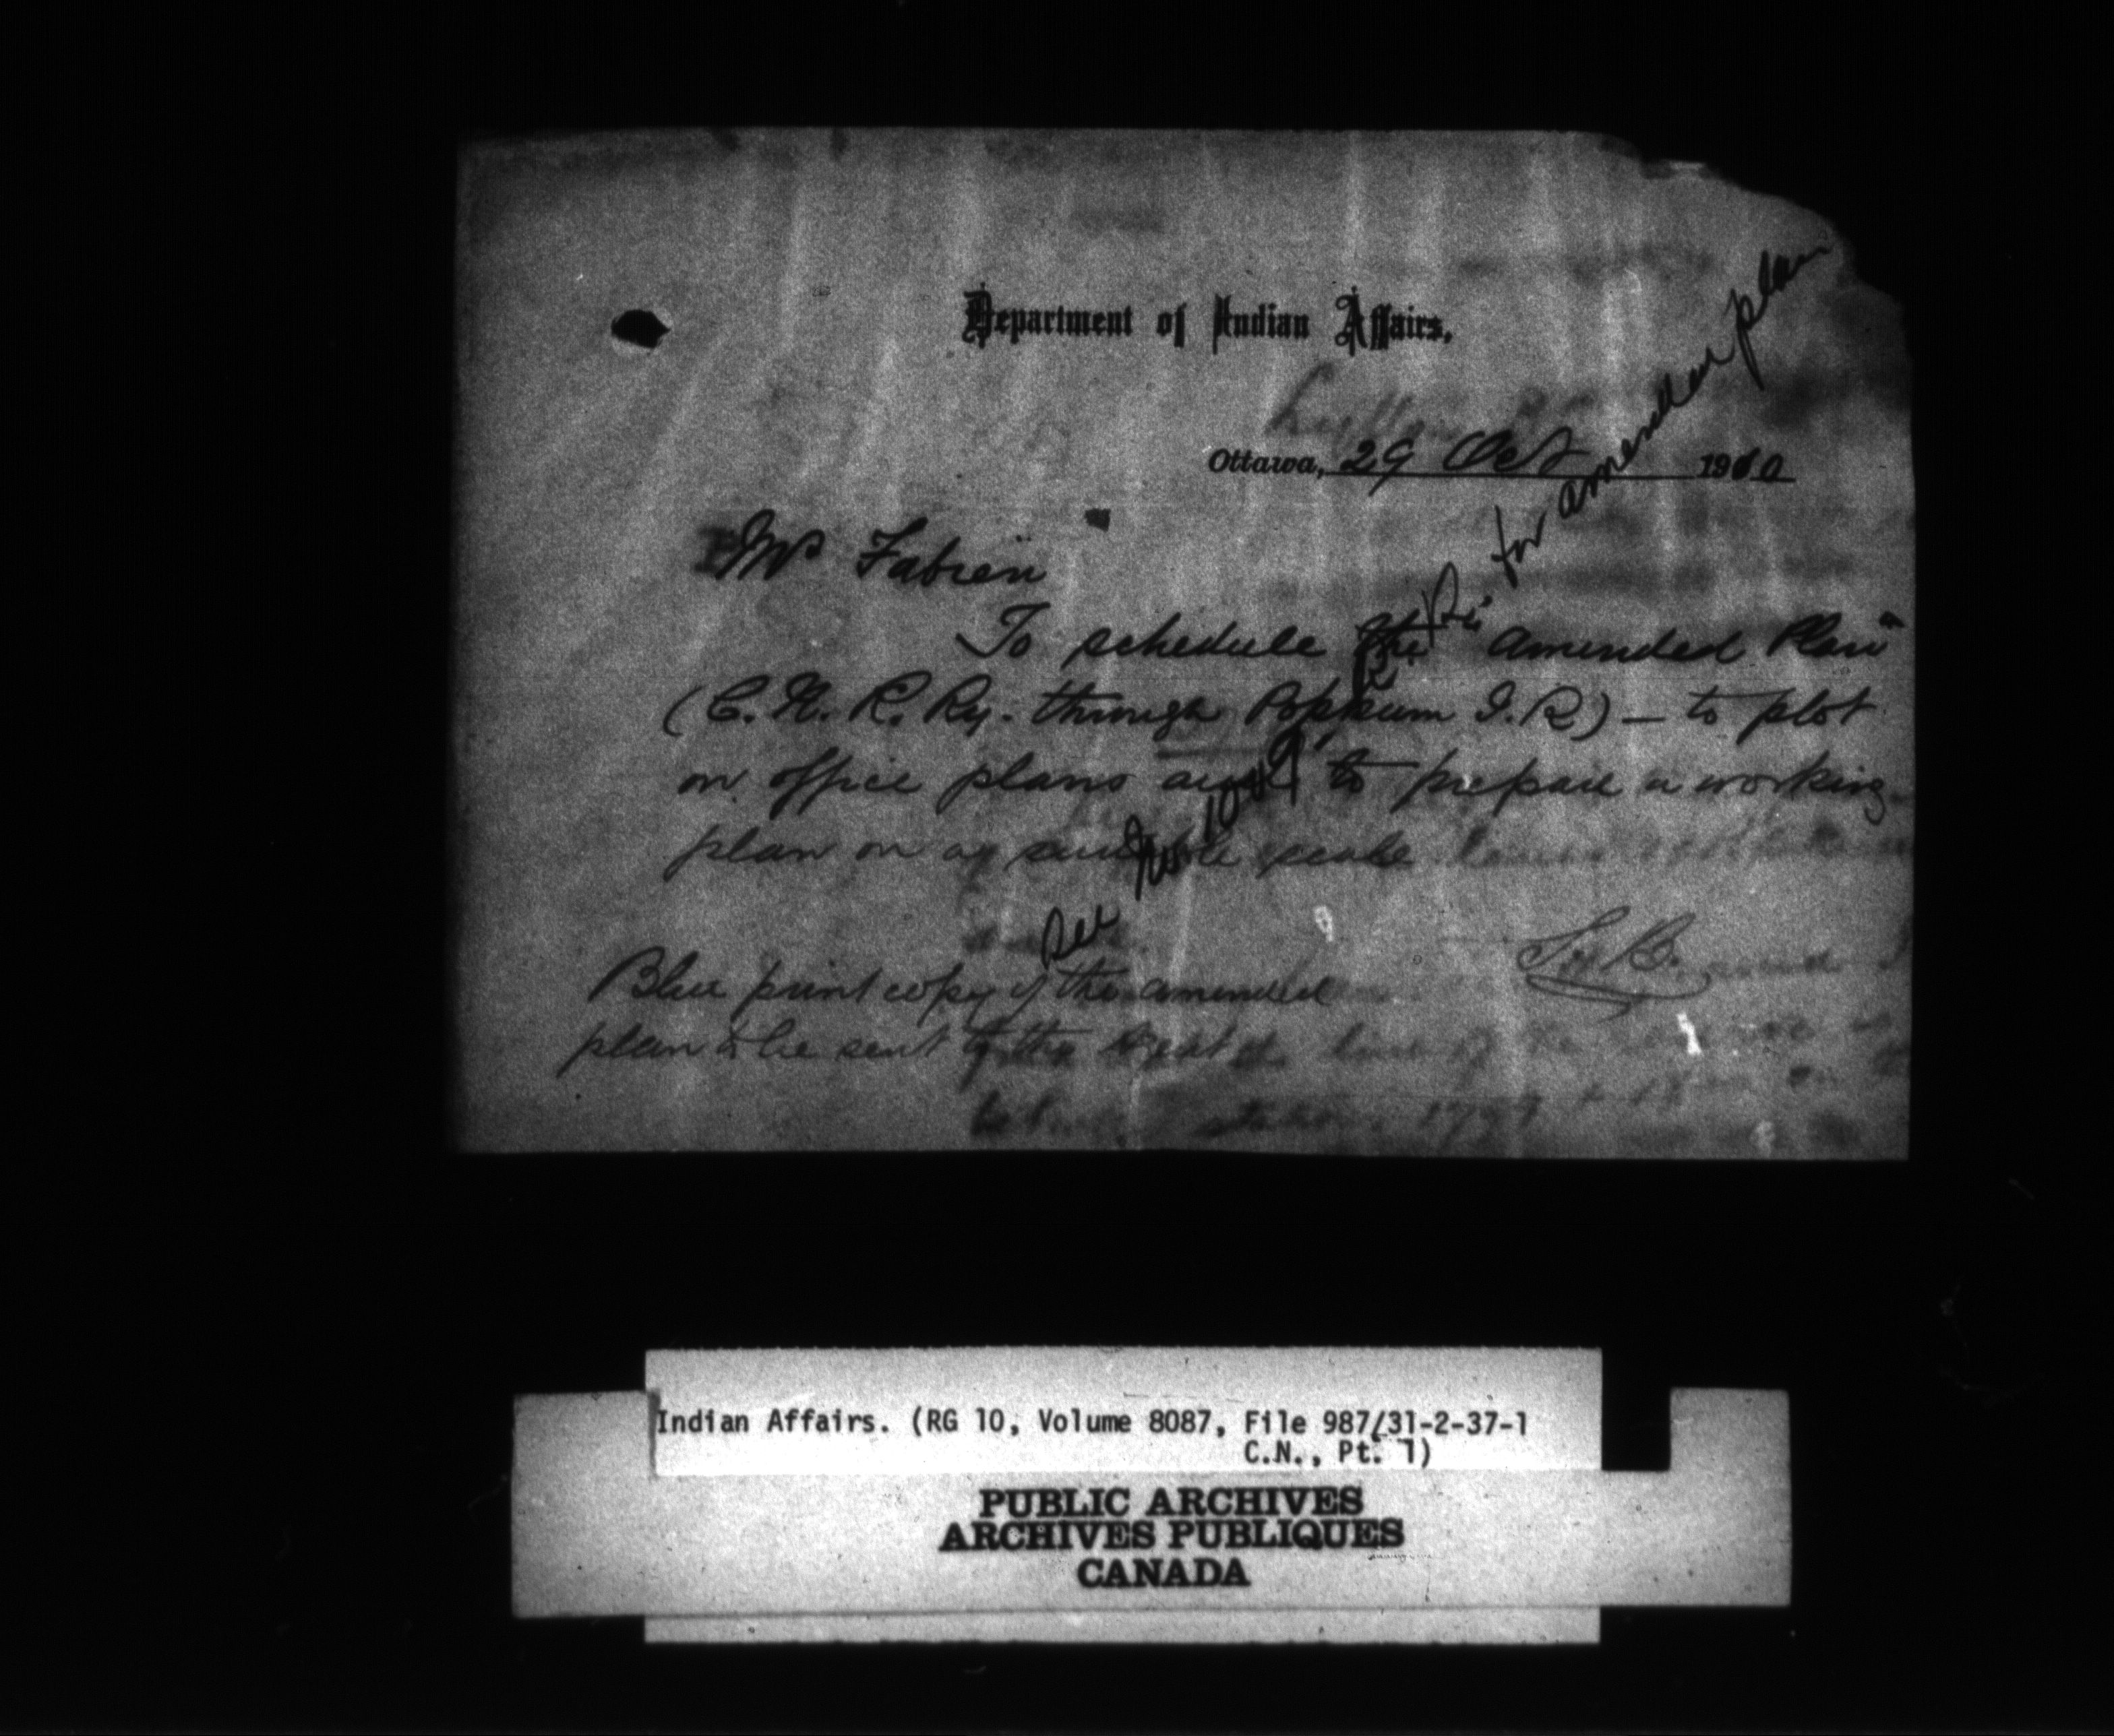 Department of Indian Affairs.
Ottawa, 29 Oct 1910
Mr Fabien
To schedule the amended Plan
(C. N. R. Ry. through Popkum I. R) — to plot
on office plans and to prepare a working
plan on a suitable scale
Blue print copy of the amended
plan to be sent to the
See No 1049 for amended plan
Indian Affairs. (RG 10, Volume 8087, File 987/31-2-37-1
C.N., Pt. 1)
PUBLIC ARCHIVES
ARCHIVES PUBLIQUES
CANADA